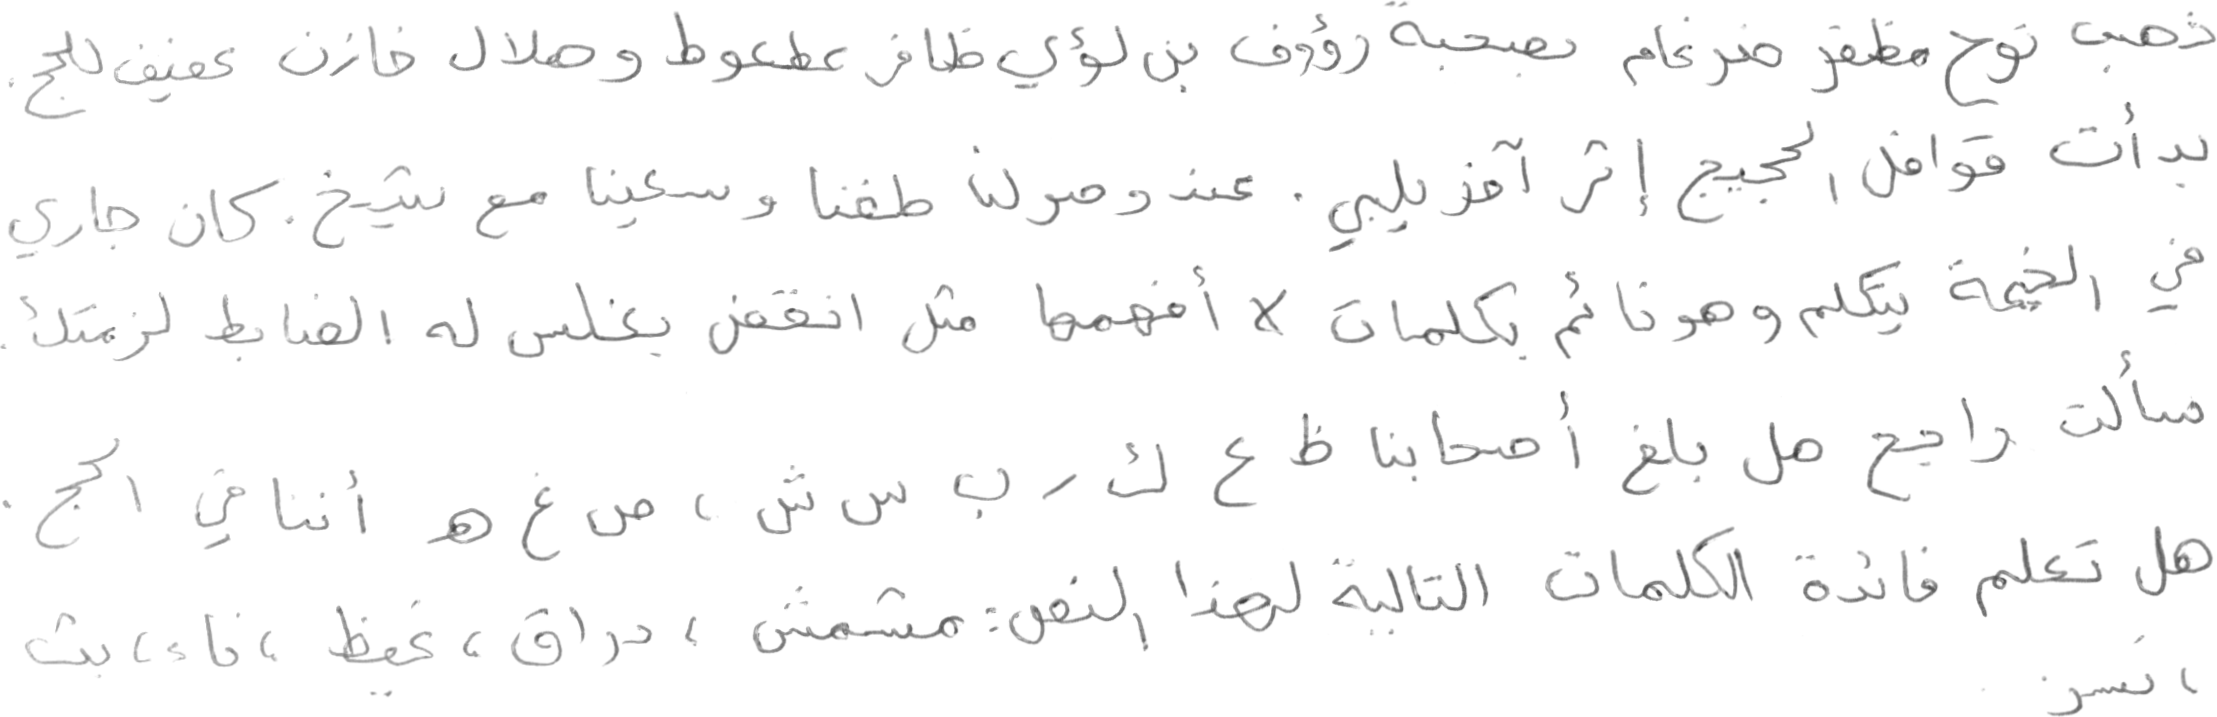 ذهب نوح مظفر ضرغام بصحبة رؤوف بن لؤي ظافر عطعوط وهلال خازن عفيف للحج.
بدأت قوافل الحجيج إثر آمز يلبي. عند وصولنا طفنا وسعينا مع شيخ. كان جاري
في الخيمة يتكلم وهو نائم بكلمات لا أفهمها مثل انقض بغلس له الضابط لزمتك.
سألت راجح هل بلغ أصحابنا ظ ع ك ر ب س ش، ص غ هـ أننا في الحج.
هل تعلم فائدة الكلمات التالية لهذا النص: مشمش، دراق، غيظ، فاء، بث
، نسر